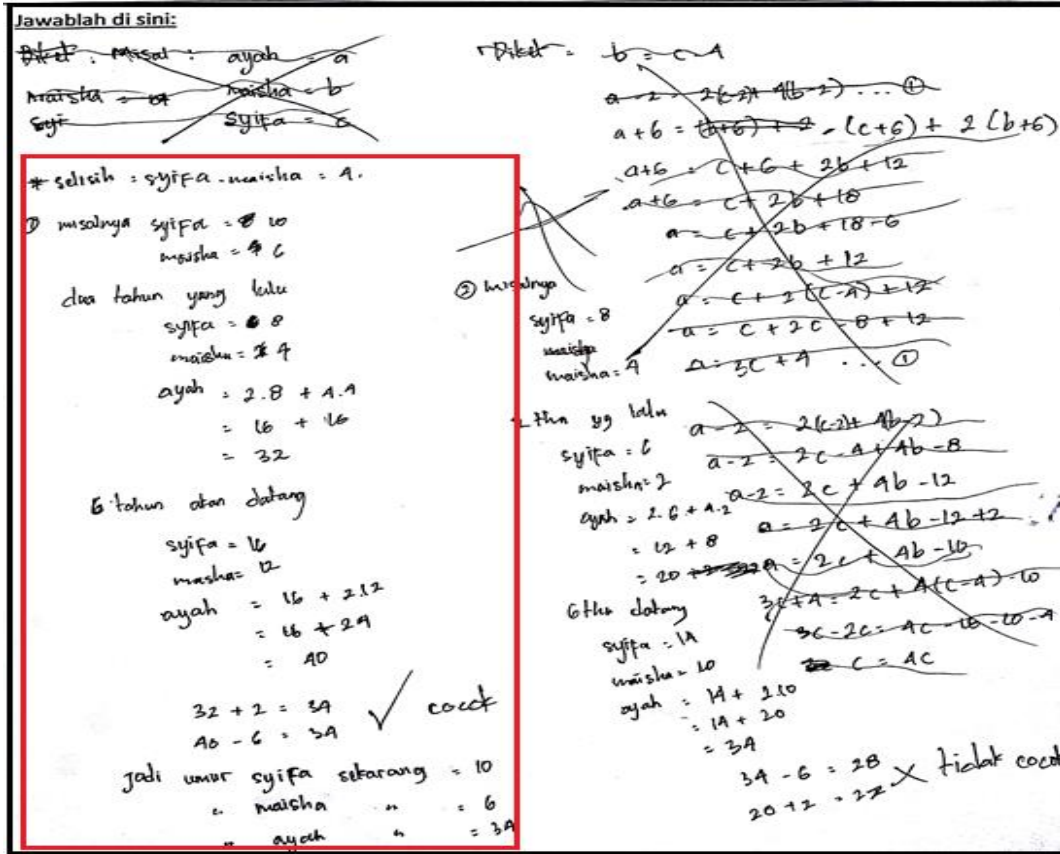 Jawablah di sini:
Diket : Misal : ayah = a
maisha = b
syifa = c
* selisih : syifa - maisha = 4.
① misalnya syifa = 10
maisha = 6
dua tahun yang lalu
syifa = 8
maisha = 4
ayah = 2.8 + 4.4
= 16 + 16
= 32
6 tahun akan datang
syifa = 16
masha = 12
ayah = 16 + 2.12
= 16 + 24
= 40
32 + 2 = 34
40 - 6 = 34
✓ cocok
Jadi umur syifa sekarang = 10
" maisha " = 6
" ayah " = 34
Diket = b = c - 4
a - 2 = 2(c-2) + 4(b-2) ... ①
a + 6 = (c+6) + 2(b+6)
a+6 = c + 6 + 2b + 12
a+6 = c + 2b + 18
a = c + 2b + 18 - 6
a = c + 2b + 12
a = c + 2(c-4) + 12
a = c + 2c - 8 + 12
a = 3c + 4 ... ①
② misalnya
syifa = 8
maisha = 4
2 thn yg lalu
syifa = 6
maisha = 2
ayah = 2.6 + 4.2
= 12 + 8
= 20
6 thn datang
syifa = 14
maisha = 10
ayah = 14 + 2.10
= 14 + 20
= 34
34 - 6 = 28
20 + 2 = 22
X tidak cocok
a - 2 = 2(c-2) + 4(b-2)
a - 2 = 2c - 4 + 4b - 8
a - 2 = 2c + 4b - 12
a = 2c + 4b - 12 + 2
a = 2c + 4b - 10
3c + 4 = 2c + 4(c-4) - 10
3c - 2c = 4c - 16 - 10 - 4
c = 4c